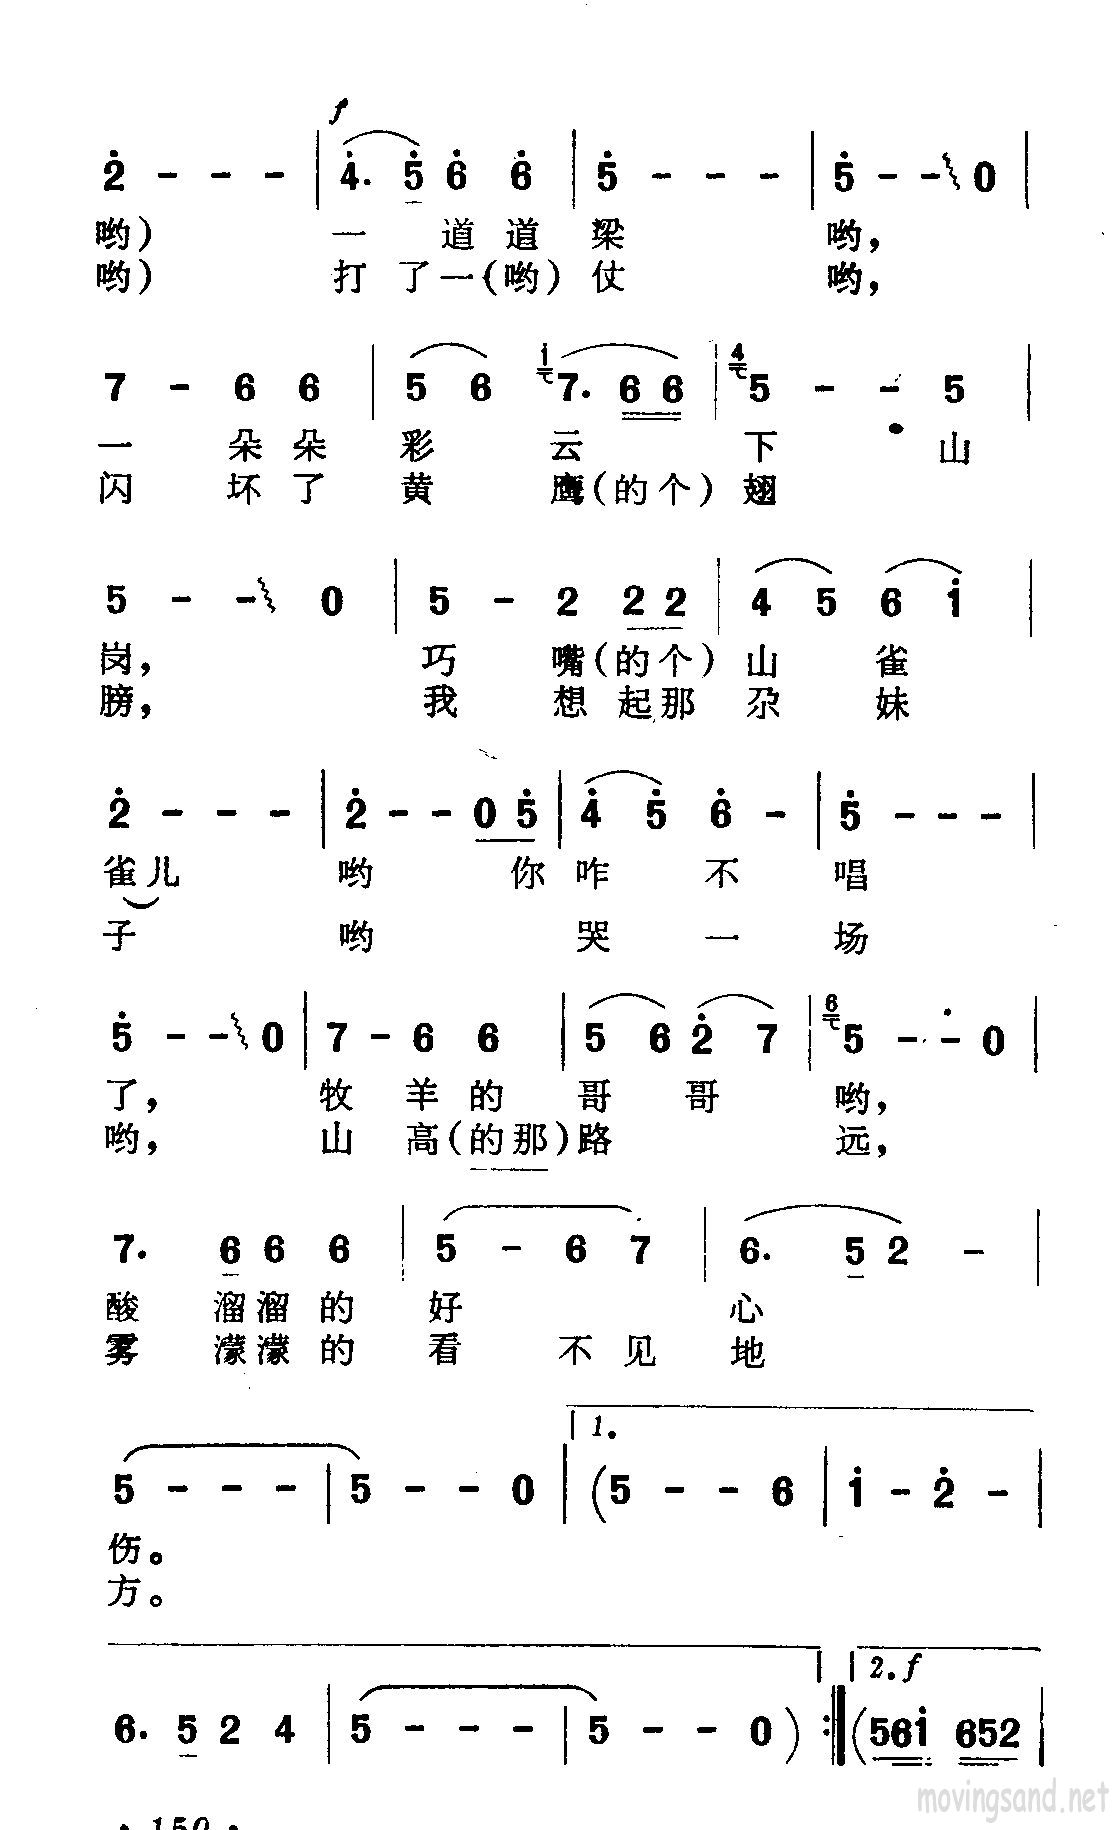 f
2̇ - - - | 4̇. 5̇ 6̇ 6̇ | 5̇ - - - | 5̇ - - 0 |
哟) 一 道 道 梁 哟,
哟) 打 了 一 (哟) 仗 哟,
7 - 6 6 | 5 6 1̇ 7. 6 6 | 4 5 - - 5 |
一 朵 朵 彩 云 下 山
闪 坏 了 黄 鹰 (的 个) 翅
5 - - 0 | 5 - 2 2 2 | 4 5 6 1̇ |
岗, 巧 嘴 (的 个) 山 雀
膀, 我 想 起 那 尕 妹
2̇ - - - | 2̇ - - 0 5̇ | 4̇ 5̇ 6̇ - | 5̇ - - - |
雀儿 哟 你 咋 不 唱
子 哟 哭 一 场
5̇ - - 0 | 7 - 6 6 | 5 6 2̇ 7 | 6 5 - - 0 |
了, 牧 羊 的 哥 哥 哟,
哟, 山 高 (的 那) 路 远,
7. 6 6 6 | 5 - 6 7 | 6. 5 2 - |
酸 溜 溜 的 好 心
雾 濛 濛 的 看 不 见 地
1.
5 - - - | 5 - - 0 | (5 - - 6 | 1̇ - 2̇ - |
伤。
方。
2. f
6. 5 2 4 | 5 - - - | 5 - - 0 ) :| (561̇ 652 |
· 150 ·
movingsand.net